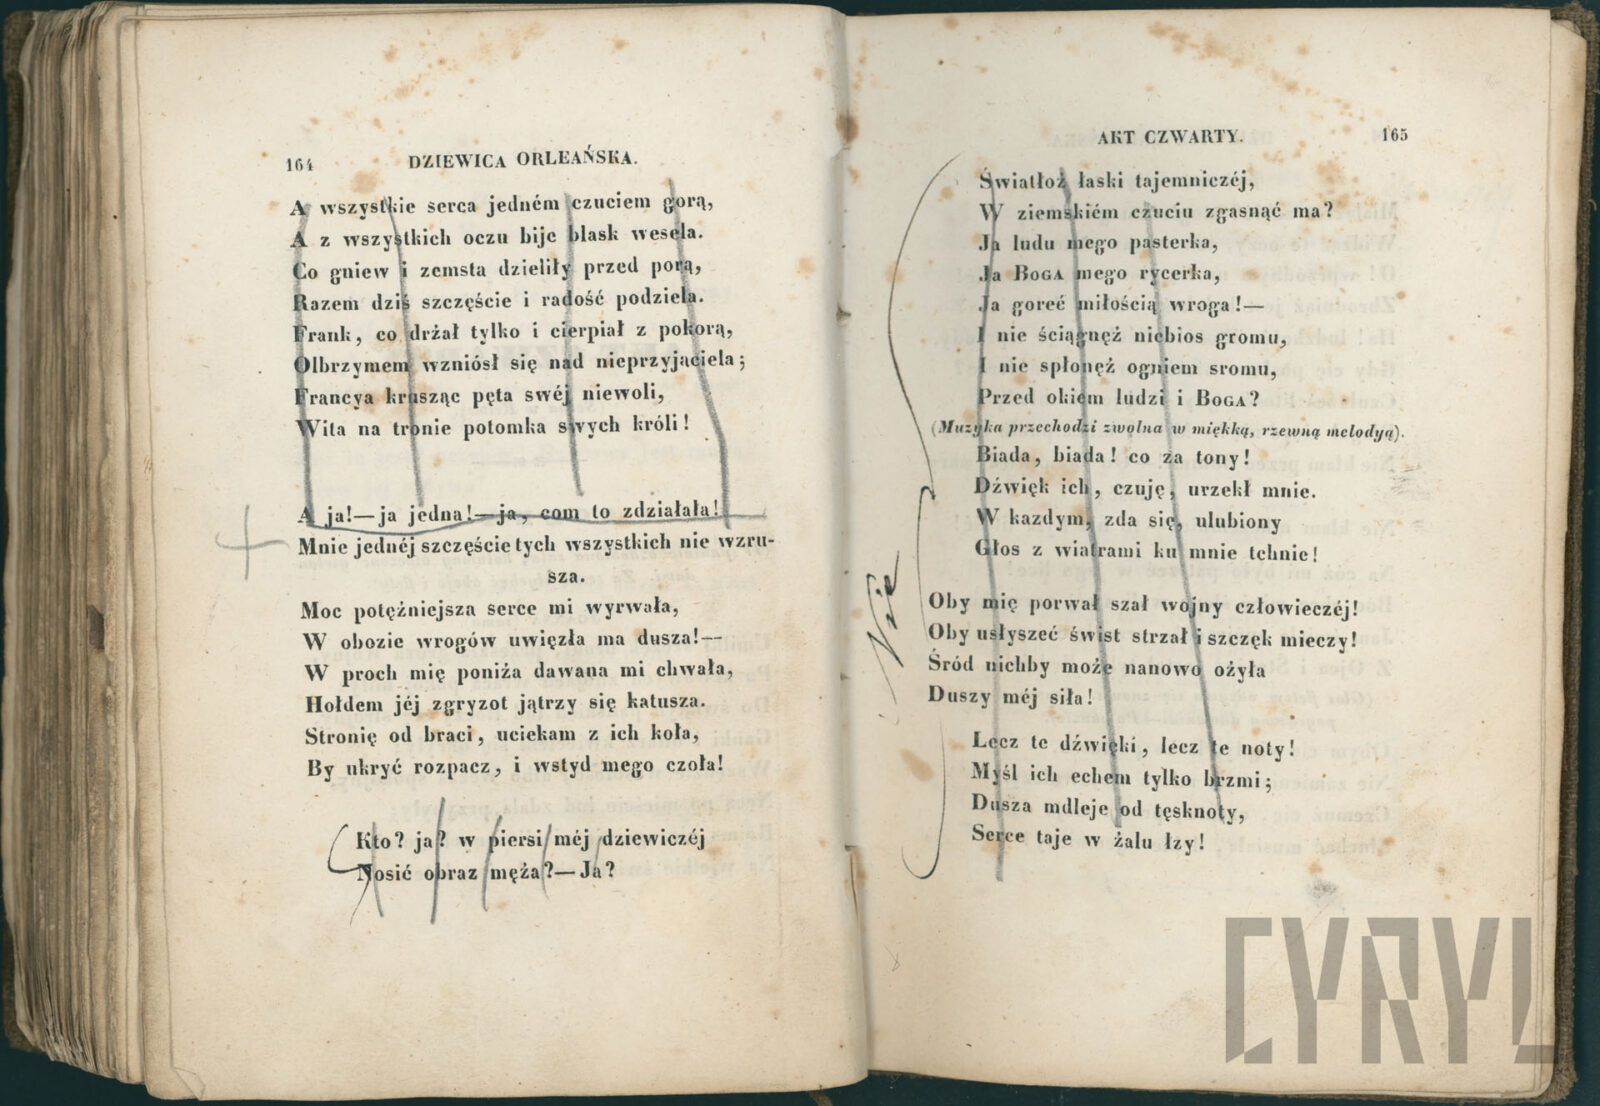 164
DZIEWICA ORLEAŃSKA.
A wszystkie serca jedném czuciem gorą,
A z wszystkich oczu bije blask wesela.
Co gniew i zemsta dzieliły przed porą,
Razem dziś szczęście i radość podziela.
Frank, co drżał tylko i cierpiał z pokorą,
Olbrzymem wzniósł się nad nieprzyjaciela;
Francya krusząc pęta swéj niewoli,
Wita na tronie potomka swych króli!
A ja!—ja jedna!—ja, com to zdziałała!
Mnie jednéj szczęście tych wszystkich nie wzru-
sza.
Moc potężniejsza serce mi wyrwała,
W obozie wrogów uwięzła ma dusza!—
W proch mię poniża dawana mi chwała,
Hołdem jéj zgryzot jątrzy się katusza.
Stronię od braci, uciekam z ich koła,
By ukryć rozpacz, i wstyd mego czoła!
Kto? ja? w piersi méj dziewiczéj
Nosić obraz męża?—Ja?
AKT CZWARTY.
165
Światłoż łaski tajemniczéj,
W ziemskiém czuciu zgasnąć ma?
Ja ludu mego pasterka,
Ja BOGA mego rycerka,
Ja goreć miłością wroga!—
I nie ściągnęż niebios gromu,
I nie spłonęż ogniem sromu,
Przed okiem ludzi i BOGA?
(Muzyka przechodzi zwolna w miękką, rzewną melodyą).
Biada, biada! co za tony!
Dźwięk ich, czuję, urzekł mnie.
W kazdym, zda się, ulubiony
Głos z wiatrami ku mnie tchnie!
Nie
Oby mię porwał szał wojny człowieczéj!
Oby usłyszeć świst strzał i szczęk mieczy!
Śród nichby może nanowo ożyła
Duszy méj siła!
Lecz te dźwięki, lecz te noty!
Myśl ich echem tylko brzmi;
Dusza mdleje od tęsknoty,
Serce taje w żalu łzy!
CYRYL